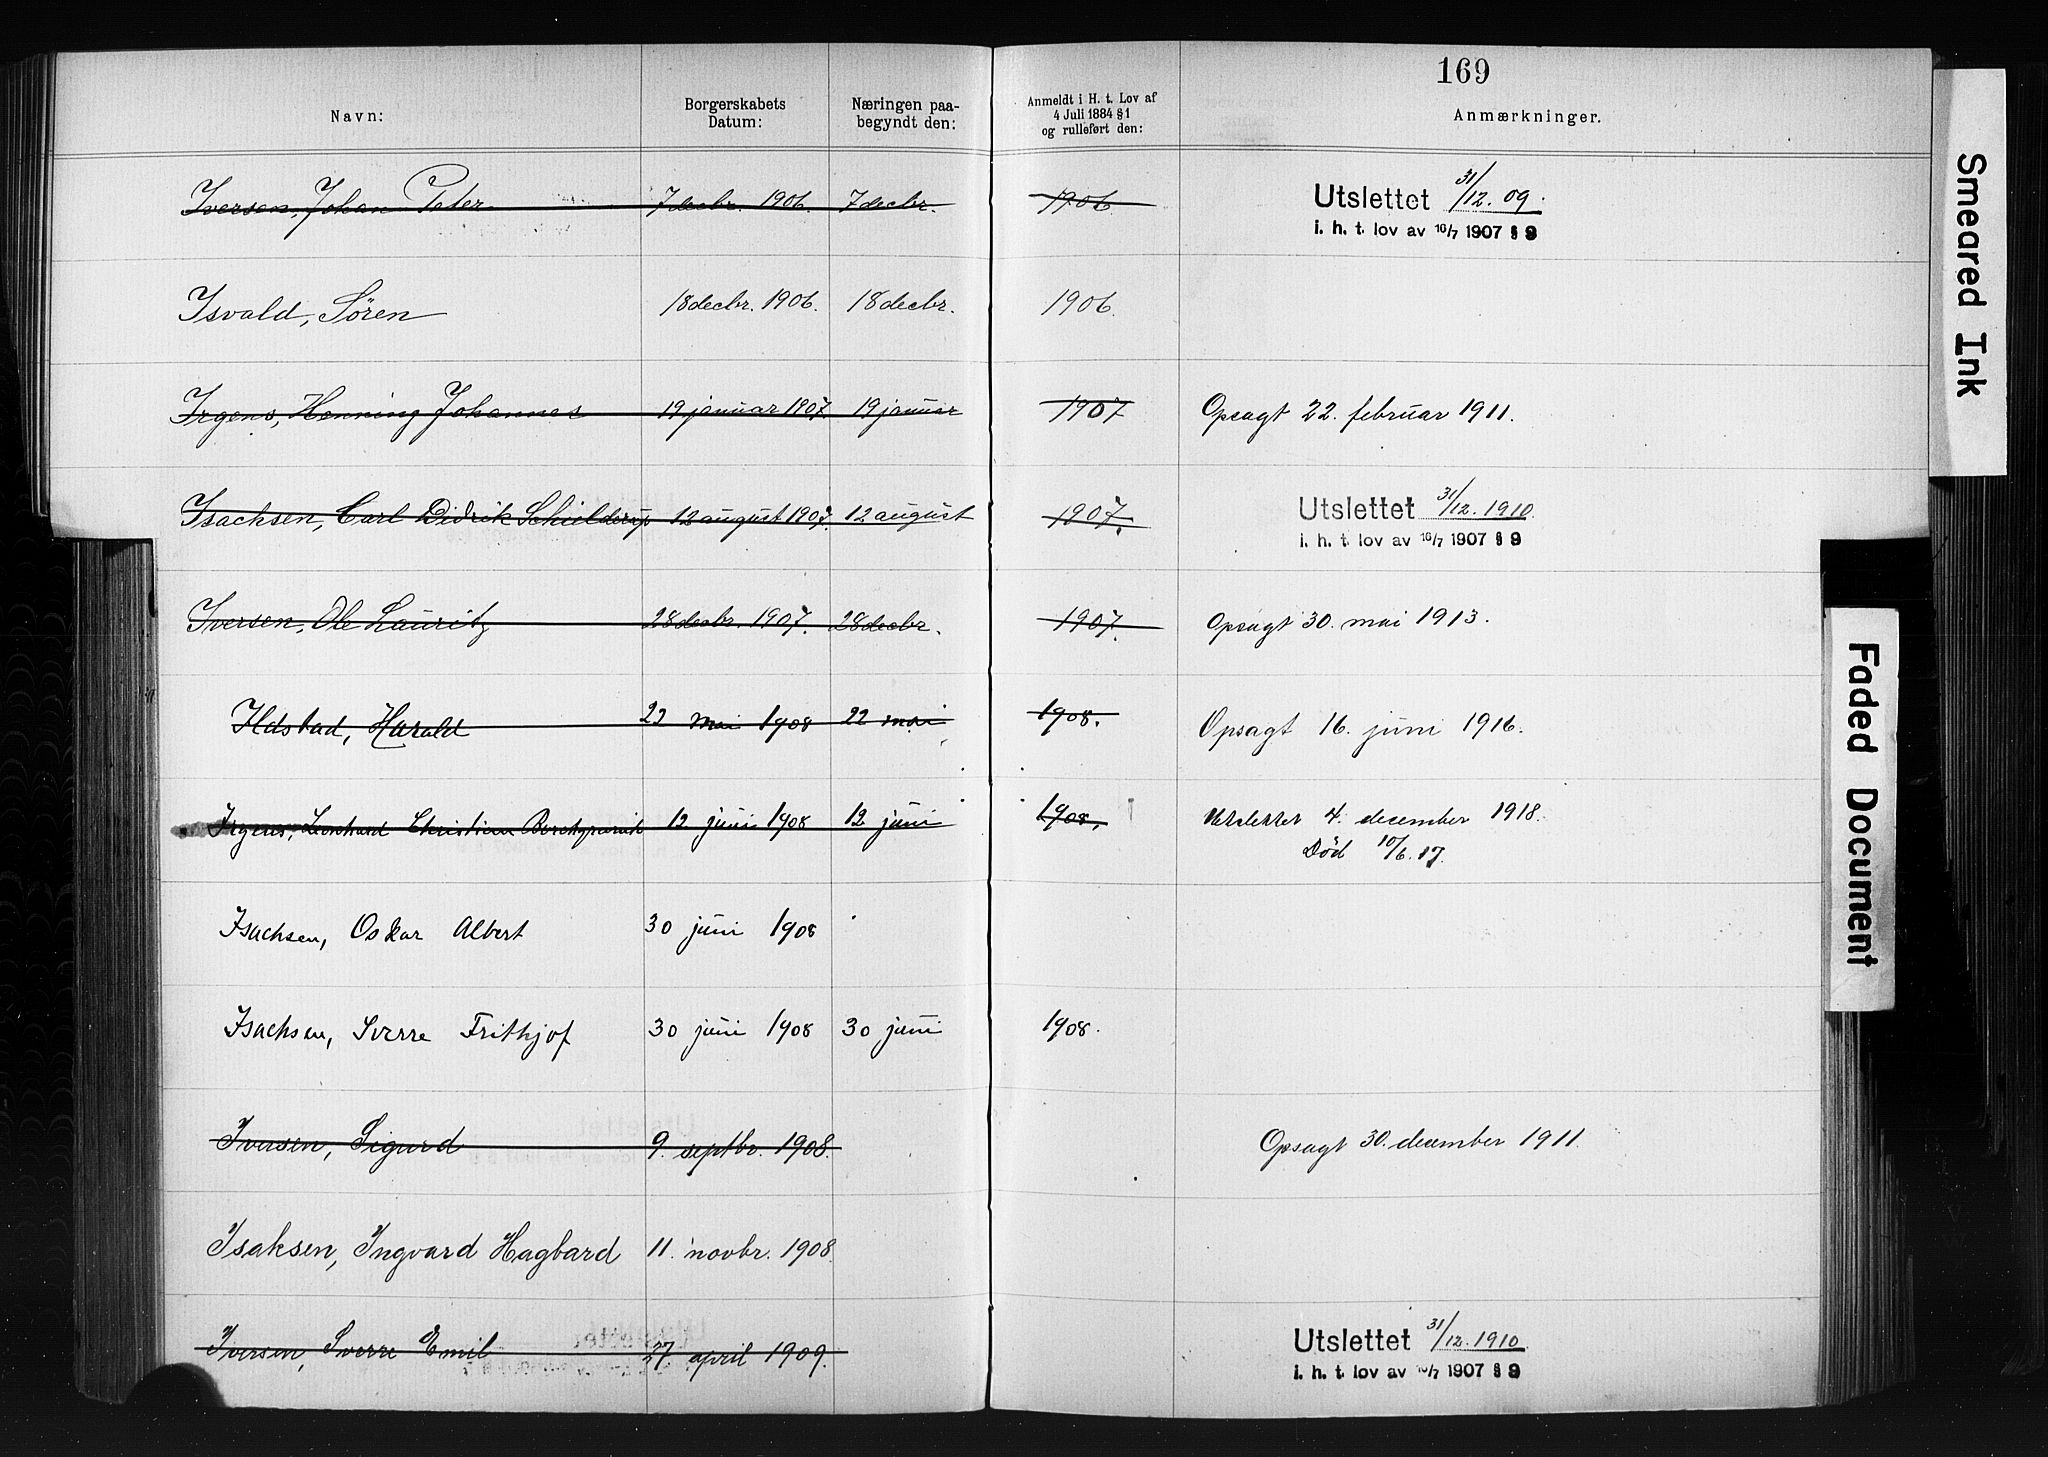 169
Navn: Borgerskabets Datum: Næringen paabegyndt den: Anmeldt i H. t. Lov af 4 Juli 1884 § 1 og rulleført den: Anmærkninger.
Iversen, Johan Peter 7 decbr. 1906. 7 decbr. 1906 Utslettet 31/12. 09.
i. h. t. lov av 16/7 1907 § 9
Isvald, Sören 18 decbr. 1906. 18 decbr. 1906.
Irgens, Henning Johannes 19 januar 1907. 19 januar 1907 Opsagt 22. februar 1911.
Isachsen, Carl Didrik Schielderup 12 august 1907. 12 august 1907. Utslettet 31/12. 1910.
i. h. t. lov av 16/7 1907 § 9
Iversen, Ole Lauritz 28 decbr. 1907. 28 decbr. 1907. Opsagt 30. mai 1913.
Ildstad, Harald 22 mai 1908 22 mai 1908. Opsagt 16. juni 1916.
Irgens, Leonhard Christian Borchgrevink 12 juni 1908 12 juni 1908. Utslettet 4. december 1918.
Død 10/6.17.
Isachsen, Oskar Albert 30 juni 1908
Isachsen, Sverre Frithjof 30 juni 1908 30 juni 1908.
Iversen, Sigurd 9. septbr. 1908. Opsagt 30. december 1911.
Isaksen, Ingvard Hagbard 11. novbr. 1908.
Iversen, Sverre Emil 27. april 1909. Utslettet 31/12. 1910.
i. h. t. lov av 16/7 1907 § 9
Smeared Ink
Faded Document